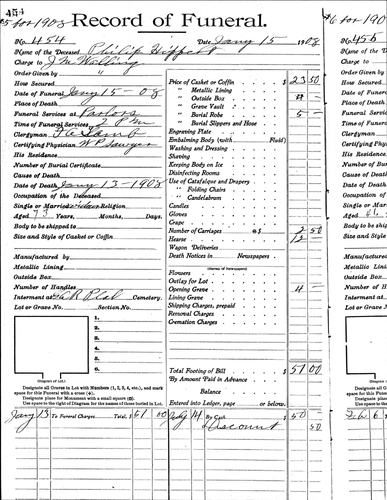 454
Record of Funeral.
No. 454 Date Jany 15 1908
Name of the Deceased Philip
Charge to J M
Order Given by "
How Secured
Date of Funeral Jany 15 - 08
Place of Death
Funeral Services at Parlors
Time of Funeral Services 2 P.M
Clergyman Lamb
Certifying Physician W P Sawyer
His Residence
Number of Burial Certificate
Cause of Death
Date of Death Jany 13 - 1908
Occupation of the Deceased
Single or Married Religion
Aged 73 Years, Months, Days
Body to be shipped to
Size and Style of Casket or Coffin
Manufactured by
Metallic Lining
Outside Box
Number of Handles
Interment at Cemetery.
Lot or Grave No. Section No.
1.
2.
3.
4.
5.
6.
(Diagram of Lot.)
Designate all Graves in Lot with Numbers (1, 2, 3, 4, etc.), and mark
space for this Funeral with a cross
Designate place for Monument with a small square
Use space to the right of Diagram for the names of those buried in Lot.
Price of Casket or Coffin $ 23 50
" Metallic Lining
" Outside Box
" Grave Vault
" Burial Robe 5 -
" Burial Slippers and Hose
Engraving Plate
Embalming Body (with Fluid)
Washing and Dressing
Shaving
Keeping Body on Ice
Disinfecting Rooms
Use of Catafalque and Drapery
" Folding Chairs
" Candelabrum
Candles
Gloves
Crape
Number of Carriages @ $ 2 50
Hearse 12
Wagon Deliveries
Death Notices in Newspapers
(Names of Newspapers)
Flowers
Outlay for Lot
Opening Grave 4 -
Lining Grave
Shipping Charges, prepaid
Removal Charges
Cremation Charges
Total Footing of Bill $ 51 00
By Amount Paid in Advance
Balance
Entered into Ledger, page or below.
Jany 13 To Funeral Charges Total, $ 51 00 14 By Cash $ 50
Discount 50
6 for 190
No. 456
Name of the
Charge to
Order Given
How Secured
Date of Fune
Place of Deat
Funeral Servi
Time of Fune
Clergyman
Certifying Ph
His Residence
Number of Bu
Cause of Deat
Date of Death
Occupation of
Single or Mar
Aged
Body to be sh
Size and Style
Manufactured
Metallic Lining
Outside Box
Number of Ha
Interment at
Lot or Grave N
Feb 6